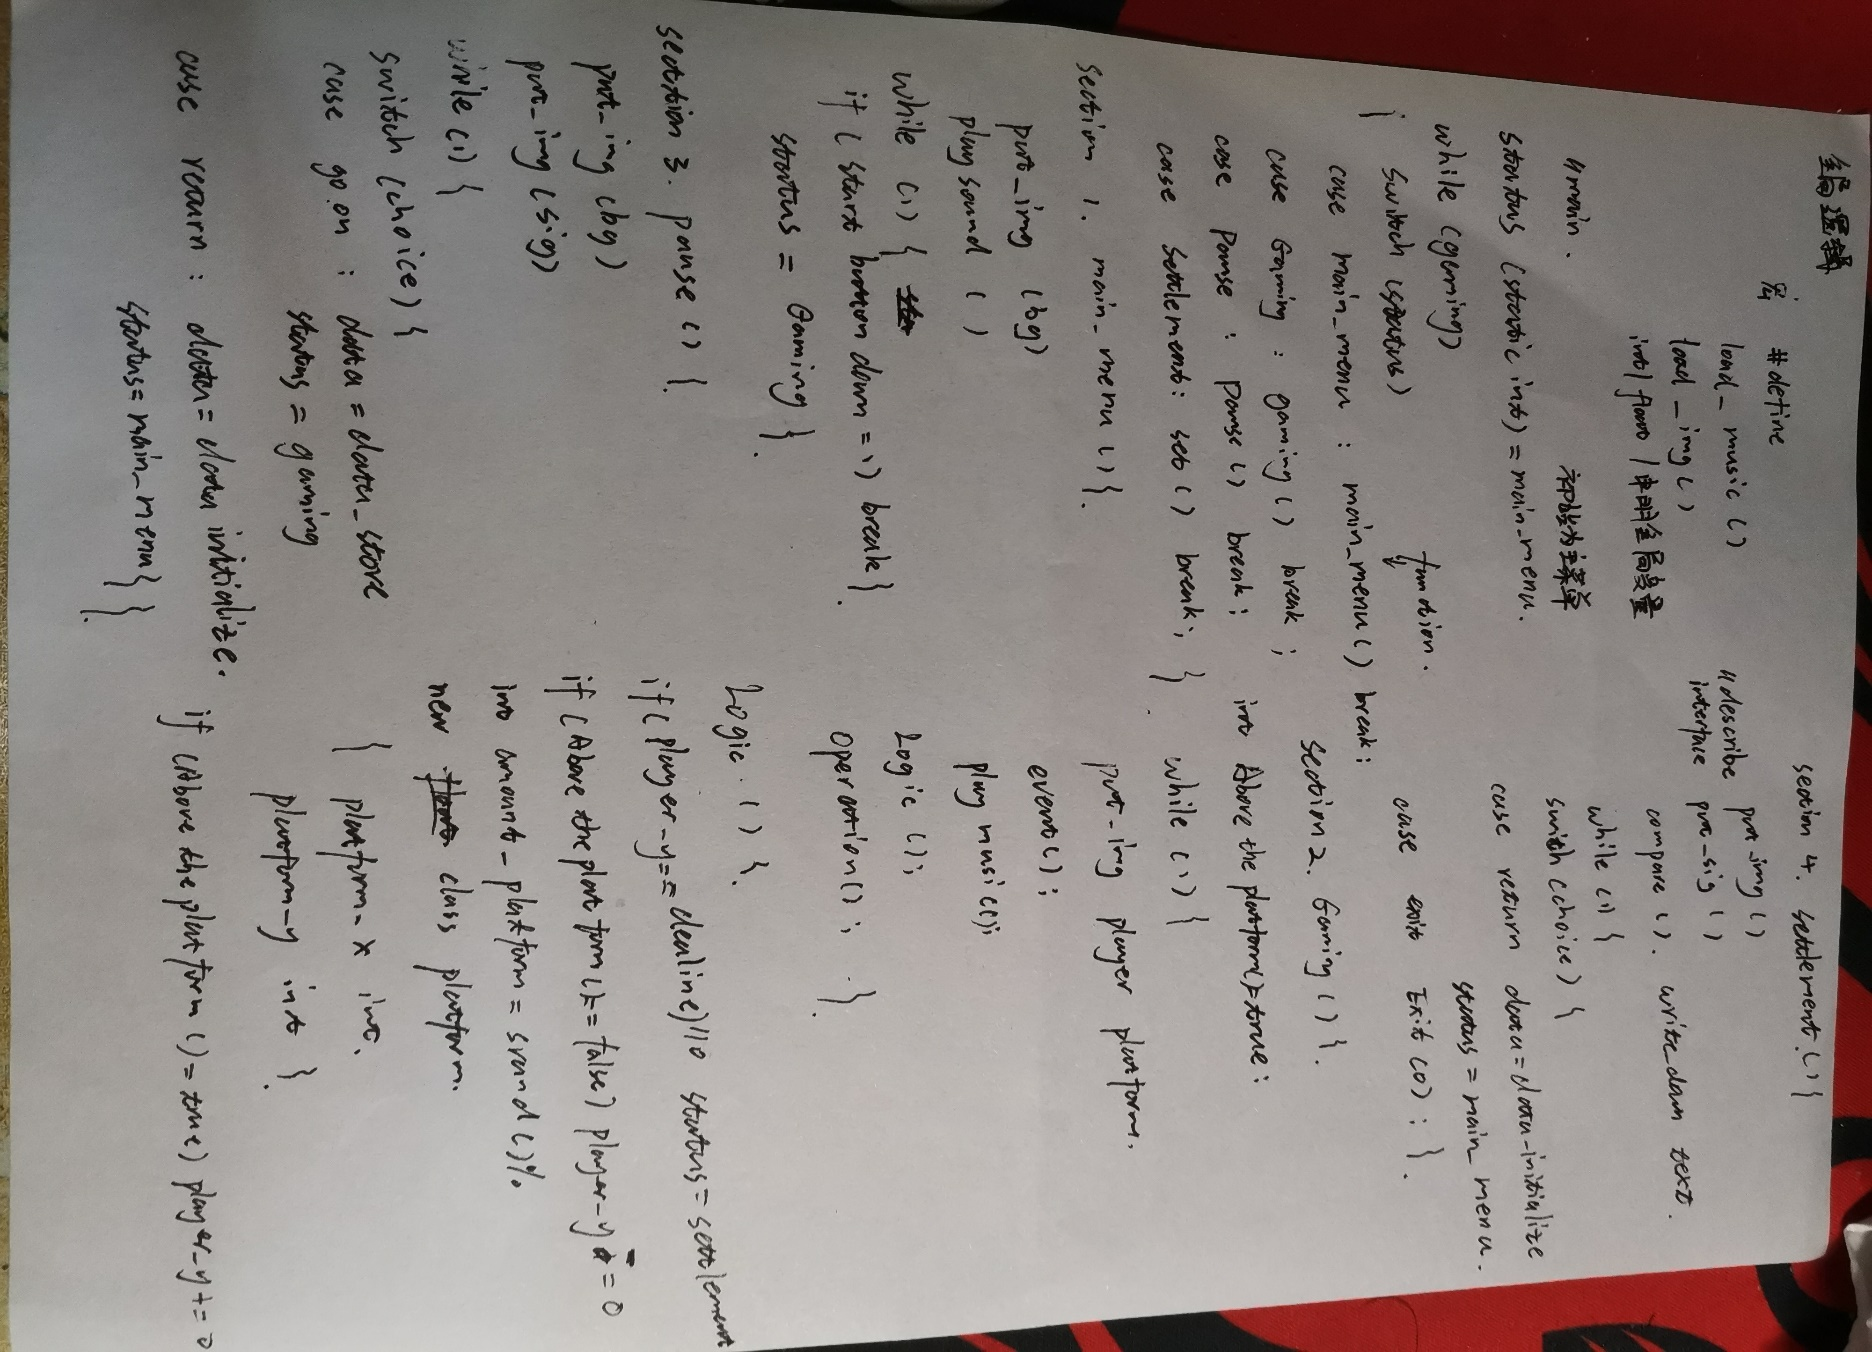 宏 #define
load_music ()
load_img ()
int / float / 申明全局变量
//main. 初始为主菜单
status (static int) = main_menu.
while (gaming)
{ switch (status) function.
case main_menu : main_menu () break;
case Gaming : gaming () break;
case pause : pause () break;
case settlement: set () break; }
section 1. main_menu () {
put_img (bg)
play sound ( )
while (1) {
if ( start button down = 1) break }.
status = Gaming }.
section 3. pause () {
put_img (bg)
put_img (sig)
while (1) {
switch (choice) {
case go on : data = data_store
status = gaming
case return : data = data initialize.
status = main_menu } } }.
section 4. settlement. () {
//describe put_img ()
interface put_sig ()
compare (). write_down text.
while (1) {
switch (choice) {
case return data = data-initialize
status = main_menu.
case exit Exit (0) : }.
section 2. Gaming () }.
int Above the platform() = true;
while (1) {
put_img player platform.
event ();
play music();
Logic ();
operation (); }.
Logic. () }.
if ( player-y == deadline) || 0 status = settlement
if (Above the platform () == false) player-y -= 0
int amount - platform = srand () %.
new class platform.
{ platform-x int.
platform-y int }.
if (Above the platform () = true) player-y += 0